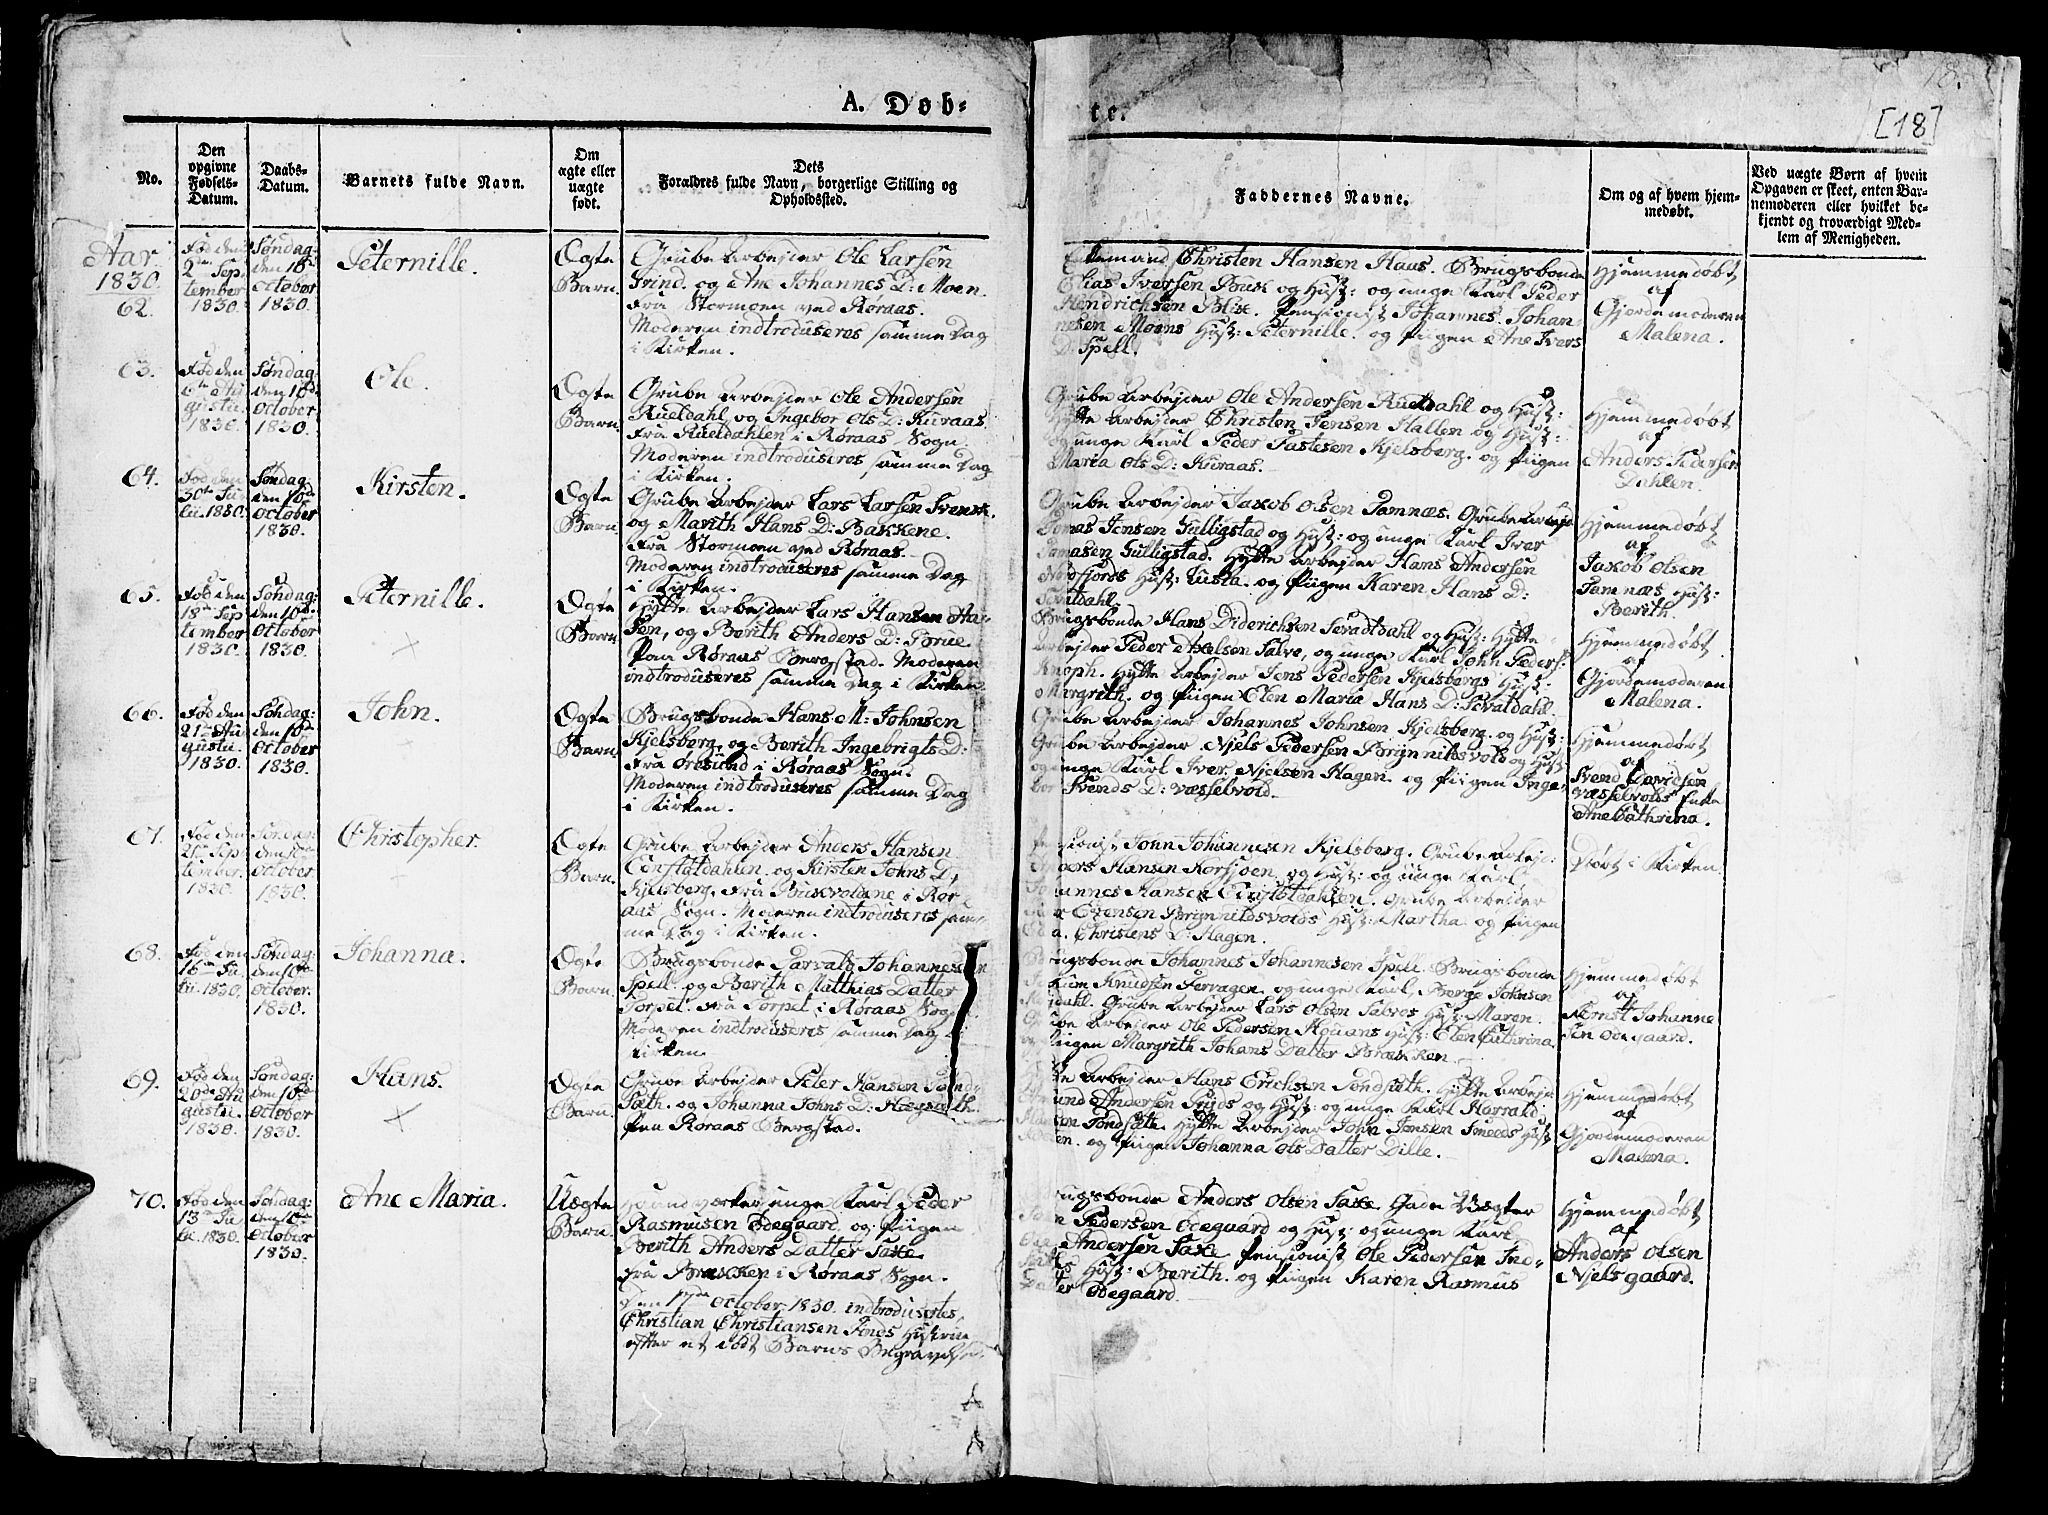 A. Døb-
te.
18.
[18]
No.
Den
opgivne
Fødsels-
Datum.
Daabs-
Datum.
Barnets fulde Navn.
Om
ægte eller
uægte
født.
Dets
Forældres fulde Navn, borgerlige Stilling og
Opholdssted.
Faddernes Navne.
Om og af hvem hjem-
medøbt.
Ved uægte Børn af hvem
Opgaven er skeet, enten Bar-
nemoderen eller hvilket be-
kjendt og troværdigt Med-
lem af Menigheden.
Aar
1830.
62.
Fød den
2den Sep
tember
1830.
Søndag:
den 10de
October
1830.
Peternille.
Ægte
Barn.
Grube Arbejder Ole Larsen
Grind. og Ane Johannes D: Moen.
fra Stormoen ved Røraas.
Moderen indtroduseres samme Dag
i Kirken.
Enkemand Christen Hansen Haus. Brugsbonde
Elias Iversen Buk og Hust: og unge Karl Peder
Hendrichsen Blix. Pensionist Johannes Johan-
nesen Moens Hust: Peternille. og Piigen Ane Ivers
D: Spell.
Hjemmedøbt
af
Gjordemoderen
Malena.
63.
Fød den
6te Au
gusti.
1830.
Søndag:
den 10de
October
1830.
Ole.
Ægte
Barn.
Grube Arbejder Ole Andersen
Rueldahl og Ingebor Ols D: Kuraas.
fra Rueldahlen i Røraas Sogn.
Moderen indtroduseres samme Dag
i Kirken.
Grube Arbejder Ole Andersen Rueldahl og Hust:
Hytte Arbejder Christen Jensen Hallen og Hust:
og unge Karl Peder Pastesen Kjelsberg. og Piigen
Maria Ols D: Kuraas.
Hjemmedøbt
af
Anders Pedersen
Dahlen.
64.
Fød den
30te Ju
lii. 1830.
Søndag
den 10de
October
1830.
Kirsten.
Ægte
Barn.
Grube Arbejder Lars Larsen Svensk.
og Marith Hans D: Bakkene.
fra Stormoen ved Røraas.
Moderen indtroduseres samme Dag
i Kirken.
Grube Arbejder Jakob Olsen Tamnæs. Grube Arbejd
Tomas Jensen Gulligstad og Hust: og unge Karl Iver
Tomasen Gulligstad. Hytte Arbejder Hans Andersen
Nordfjords Hust: Lusia. og Piigen Karen Hans D:
Hjemmedøbt
af
Jakob Olsen
Tamnæs Hust:
Berith.
65.
Fød den
18de Sep
tember
1830.
Søndag:
den 10de
October
1830.
Peternille.
Ægte
Barn.
Hytte Arbejder Lars Hansen Aa-
sen, og Berith Anders D: Brue.
Paa Røraas Bergstad. Moderen
indtroduseres samme Dag i Kirken
Brugsbonde Hans Diderichsen Sevatdahl og Hust: Hytte
Arbejder Peder Axelsen Salvo, og unge Karl John Peders:
Knoph. Hytte Arbejder Jens Pedersen Kjelsbergs Hust:
Margrith. og Piigen Elen Maria Hans D: Sevatdahl.
Hjemmedøbt
af
Gjordemoderen
Malena.
66.
Fød den
21de Au
gusti.
1830.
Søndag:
den 10de
October
1830.
John.
Ægte
Barn.
Brugsbonde Hans M: Johnsen
Kjelsberg. og Berith Ingebrigts D:
fra Øresund i Røraas Sogn.
Moderen indtroduseres samme Dag
i Kirken.
Grube Arbejder Johannes Johnsen Kjelsberg. og Hust:
Grube Arbejder Njels Pedersen Brynnildsvold og Hust:
og unge Karl Iver Njelsen Hagen. og Piigen Inge-
bor Svends D: Væsselvold.
Hjemmedøbt
af
Svend Davidsen
Væsselvolds Enke
Ane Cathrina.
67.
Fød den
Sep
tember.
1830.
Søndag:
den 10de
October
1830.
Christopher.
Ægte
Barn.
Grube Arbejder Anders Hansen
og Kirsten Johns D:
Kjelsberg. fra Bukvoldene i Rør-
aas Sogn. Moderen indtroduseres sam-
me Dag i Kirken.
Pensionist John Johannesen Kjelsberg. Grube Arbejd:
Anders Hansen Korsjoen. og Hust: og unge Karl
Johannes Hansen. Grube Arbejder
Brynnildsvolds Hust: Martha. og Piigen
Christens D: Hagen.
Døbt i Kirken.
68.
Fød den
16de Ju
lii. 1830.
Søndag:
den 10de
October.
1830.
Johanna.
Ægte
Barn.
Brugsbonde Tarvald Johannesen
Spell. og Berith Matthias Datter
Torpet. fra Torpet i Røraas Sogn
Moderen indtroduseres samme Dag i
Kirken.
Brugsbonde Johannes Johannesen Spell. Brugsbonde
Knudsen Feragen. og unge Karl, Børge Johnsen
Grube Arbejder Lars Olsen Salvos Hust: Maren.
Grube Arbejder Ole Pedersen Moans Hust: Elen Cathrina.
og Piigen Margrith Johans Datter Brækken.
Hjemmedøbt
af
Ernst Johanne
sen Ødegaard.
69.
Fød den
20de Au
gusti.
1830.
Søndag:
den 10de
October
1830.
Hans.
Ægte
Barn.
Grube Arbejder Peter Hansen Tønd-
sæth. og Johanna Johns D: Hægsæth.
Paa Røraas Bergstad.
Arbejder Hans Erichsen Tøndsæth. Hytte Arbejd
Andersen og Hust: og unge Karl Harrald
Hansen Tøndsæth. Hytte Arbejder John Jonsen Smeeds Hust
og Piigen Johanna Ols Datter Dille.
Hjemmedøbt
af
Gjordemoderen
Malena.
70.
Fød den
13de Ju
lii. 1830.
Søndag:
den 10de
October
1830.
Ane Maria.
Uægte
Barn.
Haandværker unge Karl Peder
Rasmusen Ødegaard, og Piigen
Berith Anders Datter Saxe.
fra Brækken i Røraas Sogn.
Den 17de October 1830. indtroduseres,
Christian Christiansen Finds Hustrue
efter et død Barns Begravelse.
Brugsbonde Anders Olsen Saxe. Gade Vægter
Pedersen Ødegaard og Hust: og unge Karl
Andersen Saxe. Pensionist Ole Pedersen Ind-
Hust: Berith. og Piigen Karen Rasmus
Datter Ødegaard.
Hjemmedøbt
af
Anders Olsen
Njelsgaard.